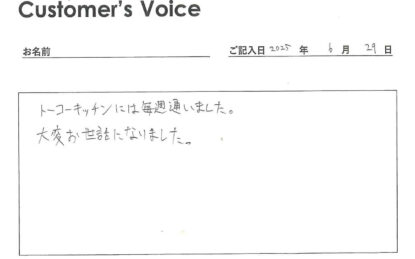 Customer's Voice
お名前
ご記入日 2025 年 6 月 29 日
トーコーキッチンには毎週通いました。
大変お世話になりました。